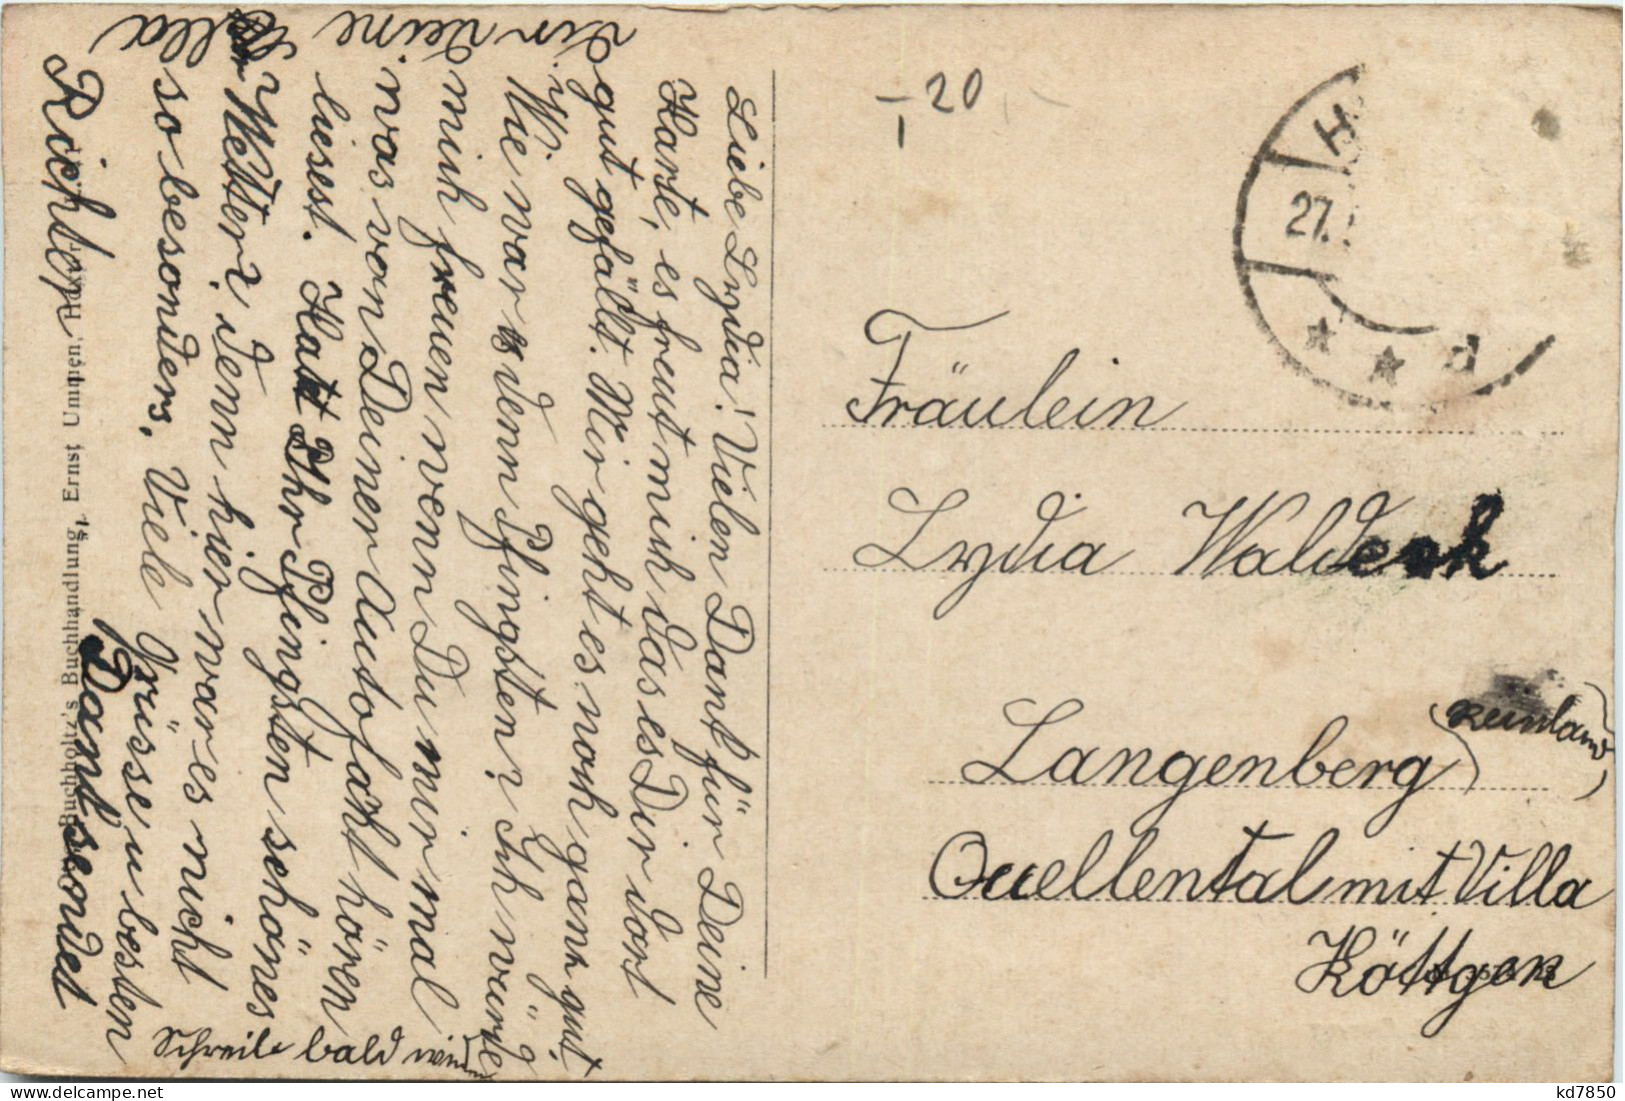 Liebe Lydia! Vielen Dank für Deine
Karte, es freut mich das es Dir dort
gut gefällt. Mir geht es noch ganz gut.
Wie war denn Pfingsten? Ich würde
mich freuen wenn Du mir mal
was von Deiner Autofahrt hören
liesest. Hattet Ihr Pfingsten schönes
Wetter? denn hier war es nicht
so besonders. Viele Grüsse u besten
Dank sendet
Dir Deine
Ella
Richter
Schreibe bald wieder
Buchholtz's Buchhandlung, Ernst Umpen,
-20
H
27.
d
Fräulein
Lydia Waldeck
Langenberg
(Reinland)
Quellental mit Villa
Köttgen
kd7850